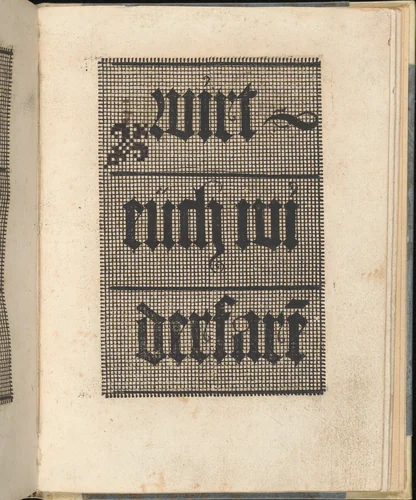 wirt ~
euch wi
derfarē